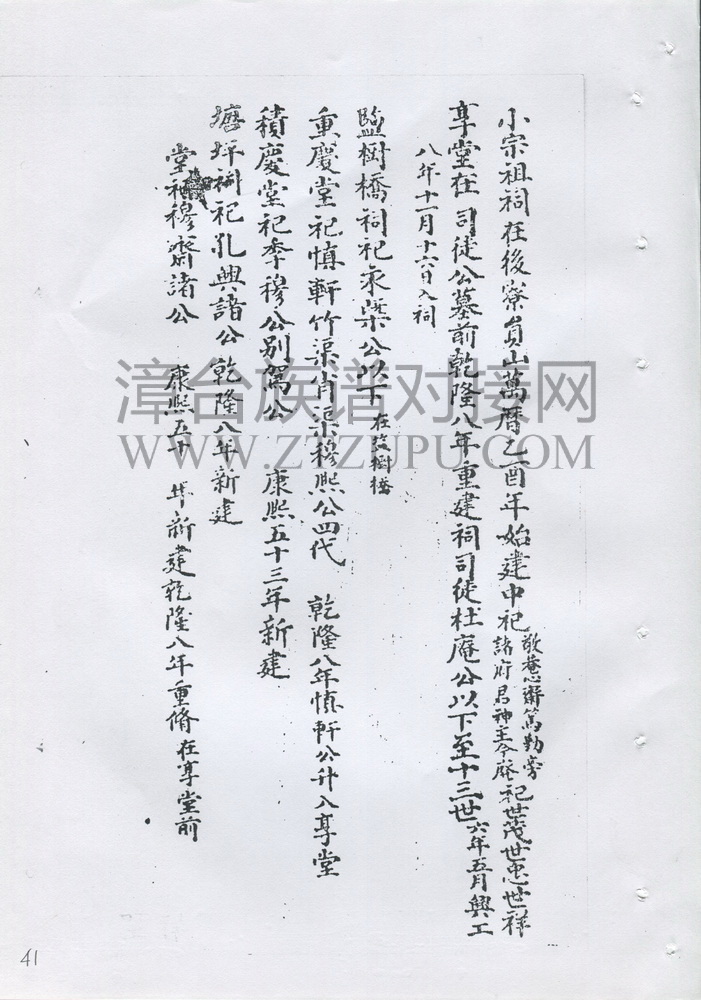 小宗祖祠在後寮員山萬曆乙酉年始建中祀敬菴心齋篤勤旁諸府君神主今廢祀世茂世忠世祥
享堂在司徒公墓前乾隆八年重建祠司徒杜庵公以下至十三世六年五月興工
八年十一月十六日入祠
監樹橋祠祀永榮公以下在茲樹橋
重慶堂祀慎軒竹渠肖渠穆熙公四代 乾隆八年慎軒公升入享堂
積慶堂祀季穆公別駕公 康熙五十三年新建
塘坪祠祀孔興諸公乾隆八年新建
堂祀穆齋諸公 康熙五十 年新建乾隆八年重脩在享堂前
漳台族谱对接网
WWW.ZTZUPU.COM
41